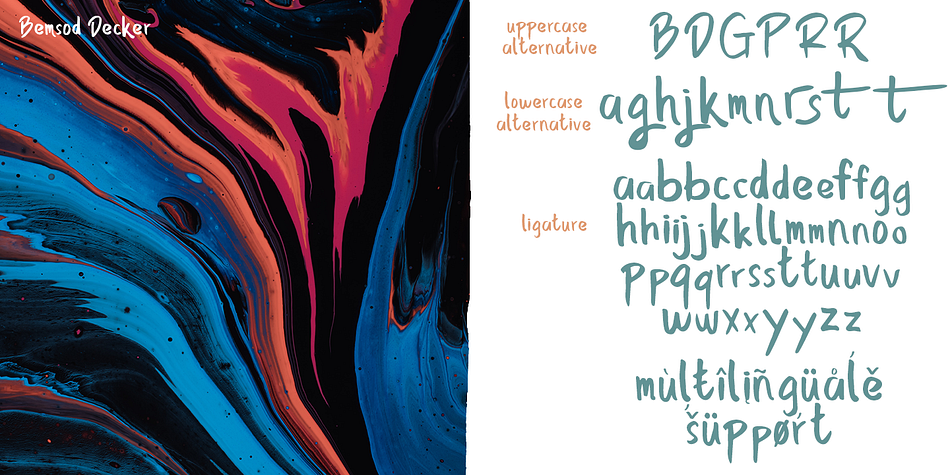 Bemsod Decker
uppercase
alternative
BDGPRR
lowercase
alternative
aghjkmnrstt
ligature
aabbccddeeffgg
hhiijjkkllmmnnoo
ppqqrrssttuuvv
wwxxyyzz
mùltîlíñgüålě
šüppørt